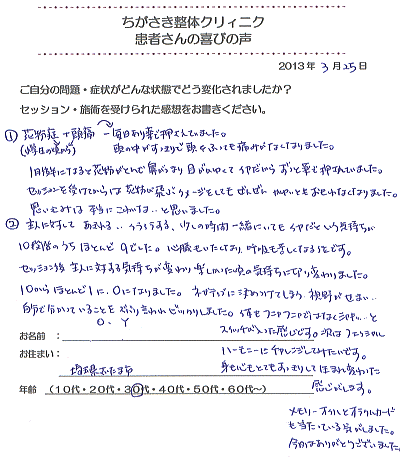 ちがさき整体クリィニク
患者さんの喜びの声
2013年 3月25日
ご自分の問題・症状がどんな状態でどう変化されましたか?
セッション・施術を受けられた感想をお書きください。
① 花粉症+頭痛 → 毎日あり薬で押さえていました。
(小学生の頃から) 頭の中がすっきりで頭をふっても痛みがなくなりました。
1日外にでると花粉がとんで鼻がつまり目がかゆくてイヤだからずっと薬で押さえていました。
セッションを受けてからは花粉が飛ぶイメージをしてもぜんぜんかゆいともおもわなくなりました。
思いこみは本当にこわいな‥と思いました。
② 主人に対して あきれる‥ イライラする、少しの時間一緒にいてもイヤだという気持ちが
10段階のうちほとんど9でした。心臓もいたくなり、呼吸も苦しくなるほどです。
セッション後 主人に対する気持ちが変わり 楽しかった頃の気持ちに切り変わりました。
10からほとんど1に、0になりました。ネガティブに決めつけてしまう、視野がせまい…
自分で分かっていることをズバリ言われビックリしました。
スイッチが入った感じです。次は
お名前 : O.Y
ハーモニーにチャレンジしてみたいです。
お住まい: 埼玉県さいたま市
身も心もとてもすっきりして生まれ変わった
年齢 (10代・20代・30代・40代・50代・60代~)
感じがします。
メモリーオイルとオラクルカード
も当たっている気がしました。
今日はありがとうございました。